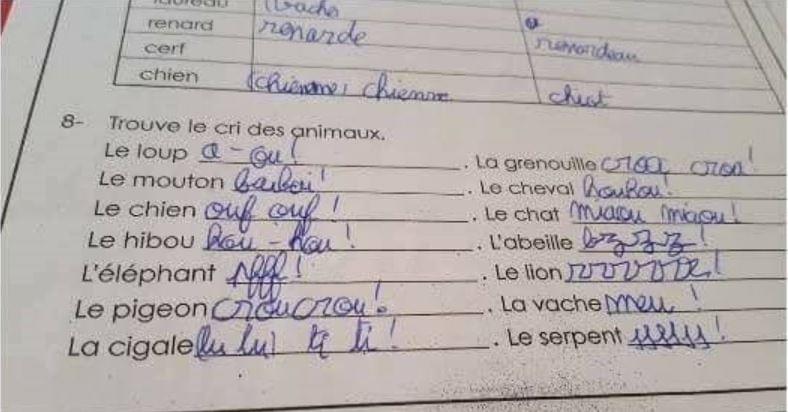 vache
renard renarde renardeau
cerf
chien chienne chiot
8- Trouve le cri des animaux.
Le loup a-ou! . La grenouille croa croa!
Le mouton . Le cheval houhou!
Le chien ouf ouf! . Le chat miaou miaou!
Le hibou hou-hou! . L'abeille bzzzz!
L'éléphant . Le lion
Le pigeon croucrou! . La vache meu!
La cigale . Le serpent sssss!